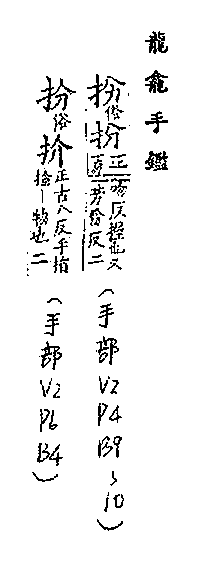 龍龕手鑑
扮俗扮正 反握也又 芳粉反二
(手部V2P4B9、10)
扮俞扴正古八反手指
捨—物也二
(手部V2P6B4)